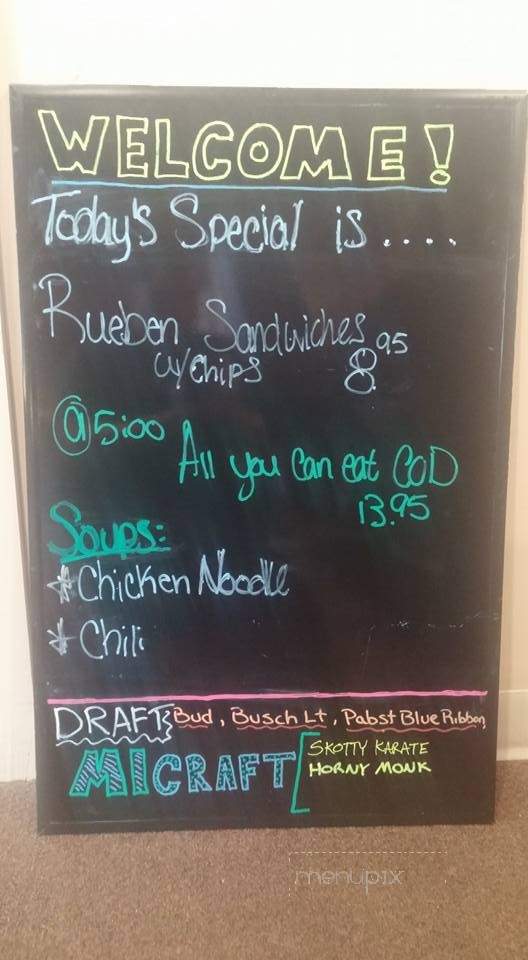 WELCOME!
Today's Special is ....
Rueben Sandwiches 8.95
w/chips
@5:00
All you can eat COD
13.95
Soups:
* Chicken Noodle
* Chili
DRAFTS Bud, Busch Lt, Pabst Blue Ribbon
MICRAFT
SKOTTY KARATE
HORNY MONK
menupix